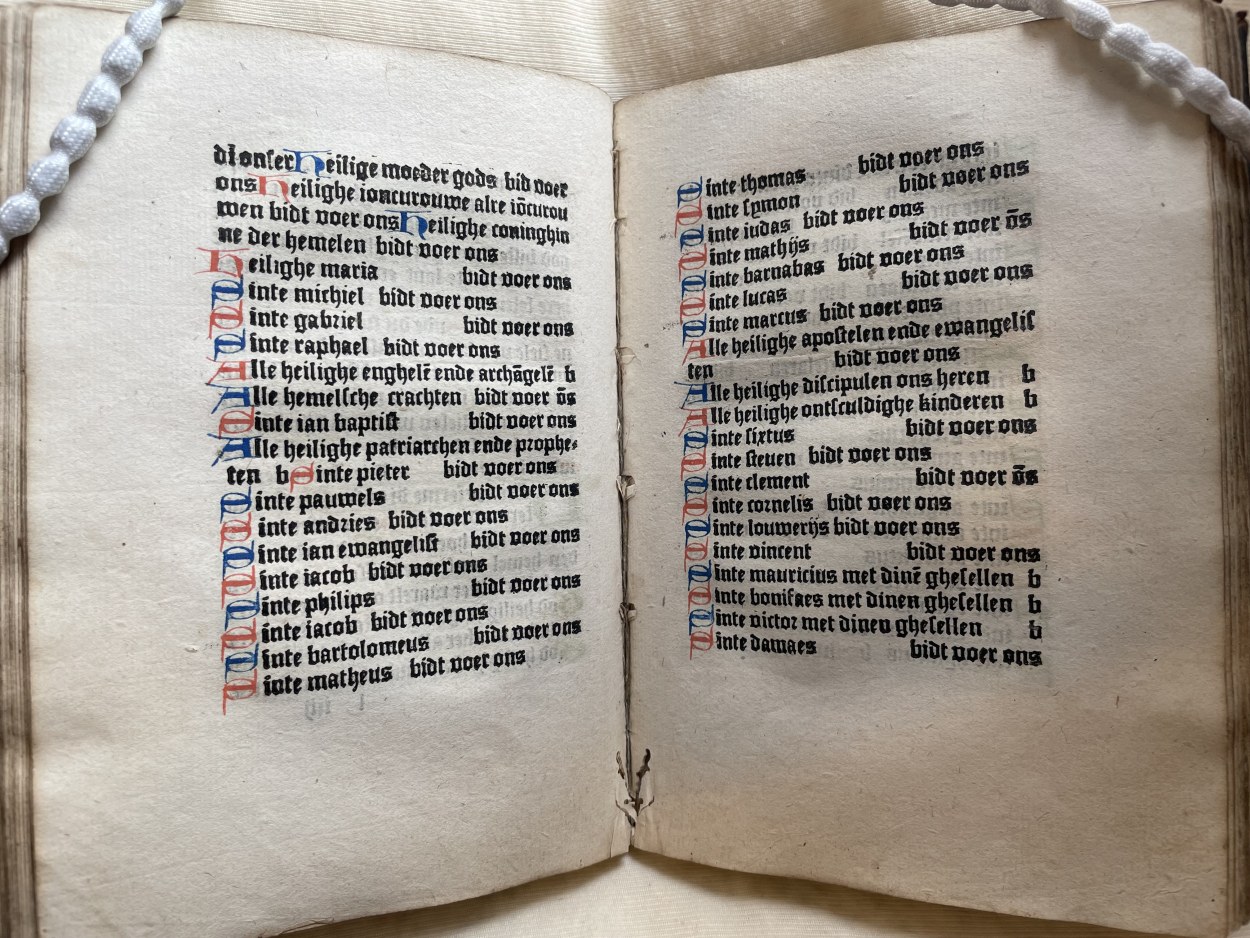 di onser Heilige moeder gods bid voer
ons Heilighe ioncurouwe alre iōcurou
wen bidt voer ons Heilighe coninghin
ne der hemelen bidt voer ons
Heilighe maria bidt voer ons
Sinte michiel bidt voer ons
Sinte gabriel bidt voer ons
Sinte raphael bidt voer ons
Alle heilighe enghelē ende archāgelē b
Alle hemelsche crachten bidt voer ōs
Sinte ian baptist bidt voer ons
Alle heilighe patriarchen ende prophe-
ten b Sinte pieter bidt voer ons
Sinte pauwels bidt voer ons
Sinte andries bidt voer ons
Sinte ian ewangelist bidt voer ons
Sinte iacob bidt voer ons
Sinte philips bidt voer ons
Sinte iacob bidt voer ons
Sinte bartolomeus bidt voer ons
Sinte matheus bidt voer ons
Sinte thomas bidt voer ons
Sinte symon bidt voer ons
Sinte iudas bidt voer ons
Sinte mathijs bidt voer ōs
Sinte barnabas bidt voer ons
Sinte lucas bidt voer ons
Sinte marcus bidt voer ons
Alle heilighe apostelen ende ewangelis
ten bidt voer ons
Alle heilighe discipulen ons heren b
Alle heilighe ontsculdighe kinderen b
Sinte sixtus bidt voer ons
Sinte steuen bidt voer ons
Sinte clement bidt voer ōs
Sinte cornelis bidt voer ons
Sinte louwerijs bidt voer ons
Sinte vincent bidt voer ons
Sinte mauricius met dinē ghesellen b
Sinte bonifaes met dinen ghesellen b
Sinte victor met dinen ghesellen b
Sinte damaes bidt voer ons